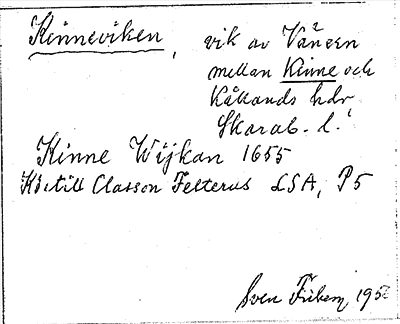 Kinneviken, vik av Vänern
mellan Kinne och
Kållands hdr
Skarab. l.
Kinne Wijkan 1655
Kiettill Classon Felterus LSA, P5
Sven Friberg, 195